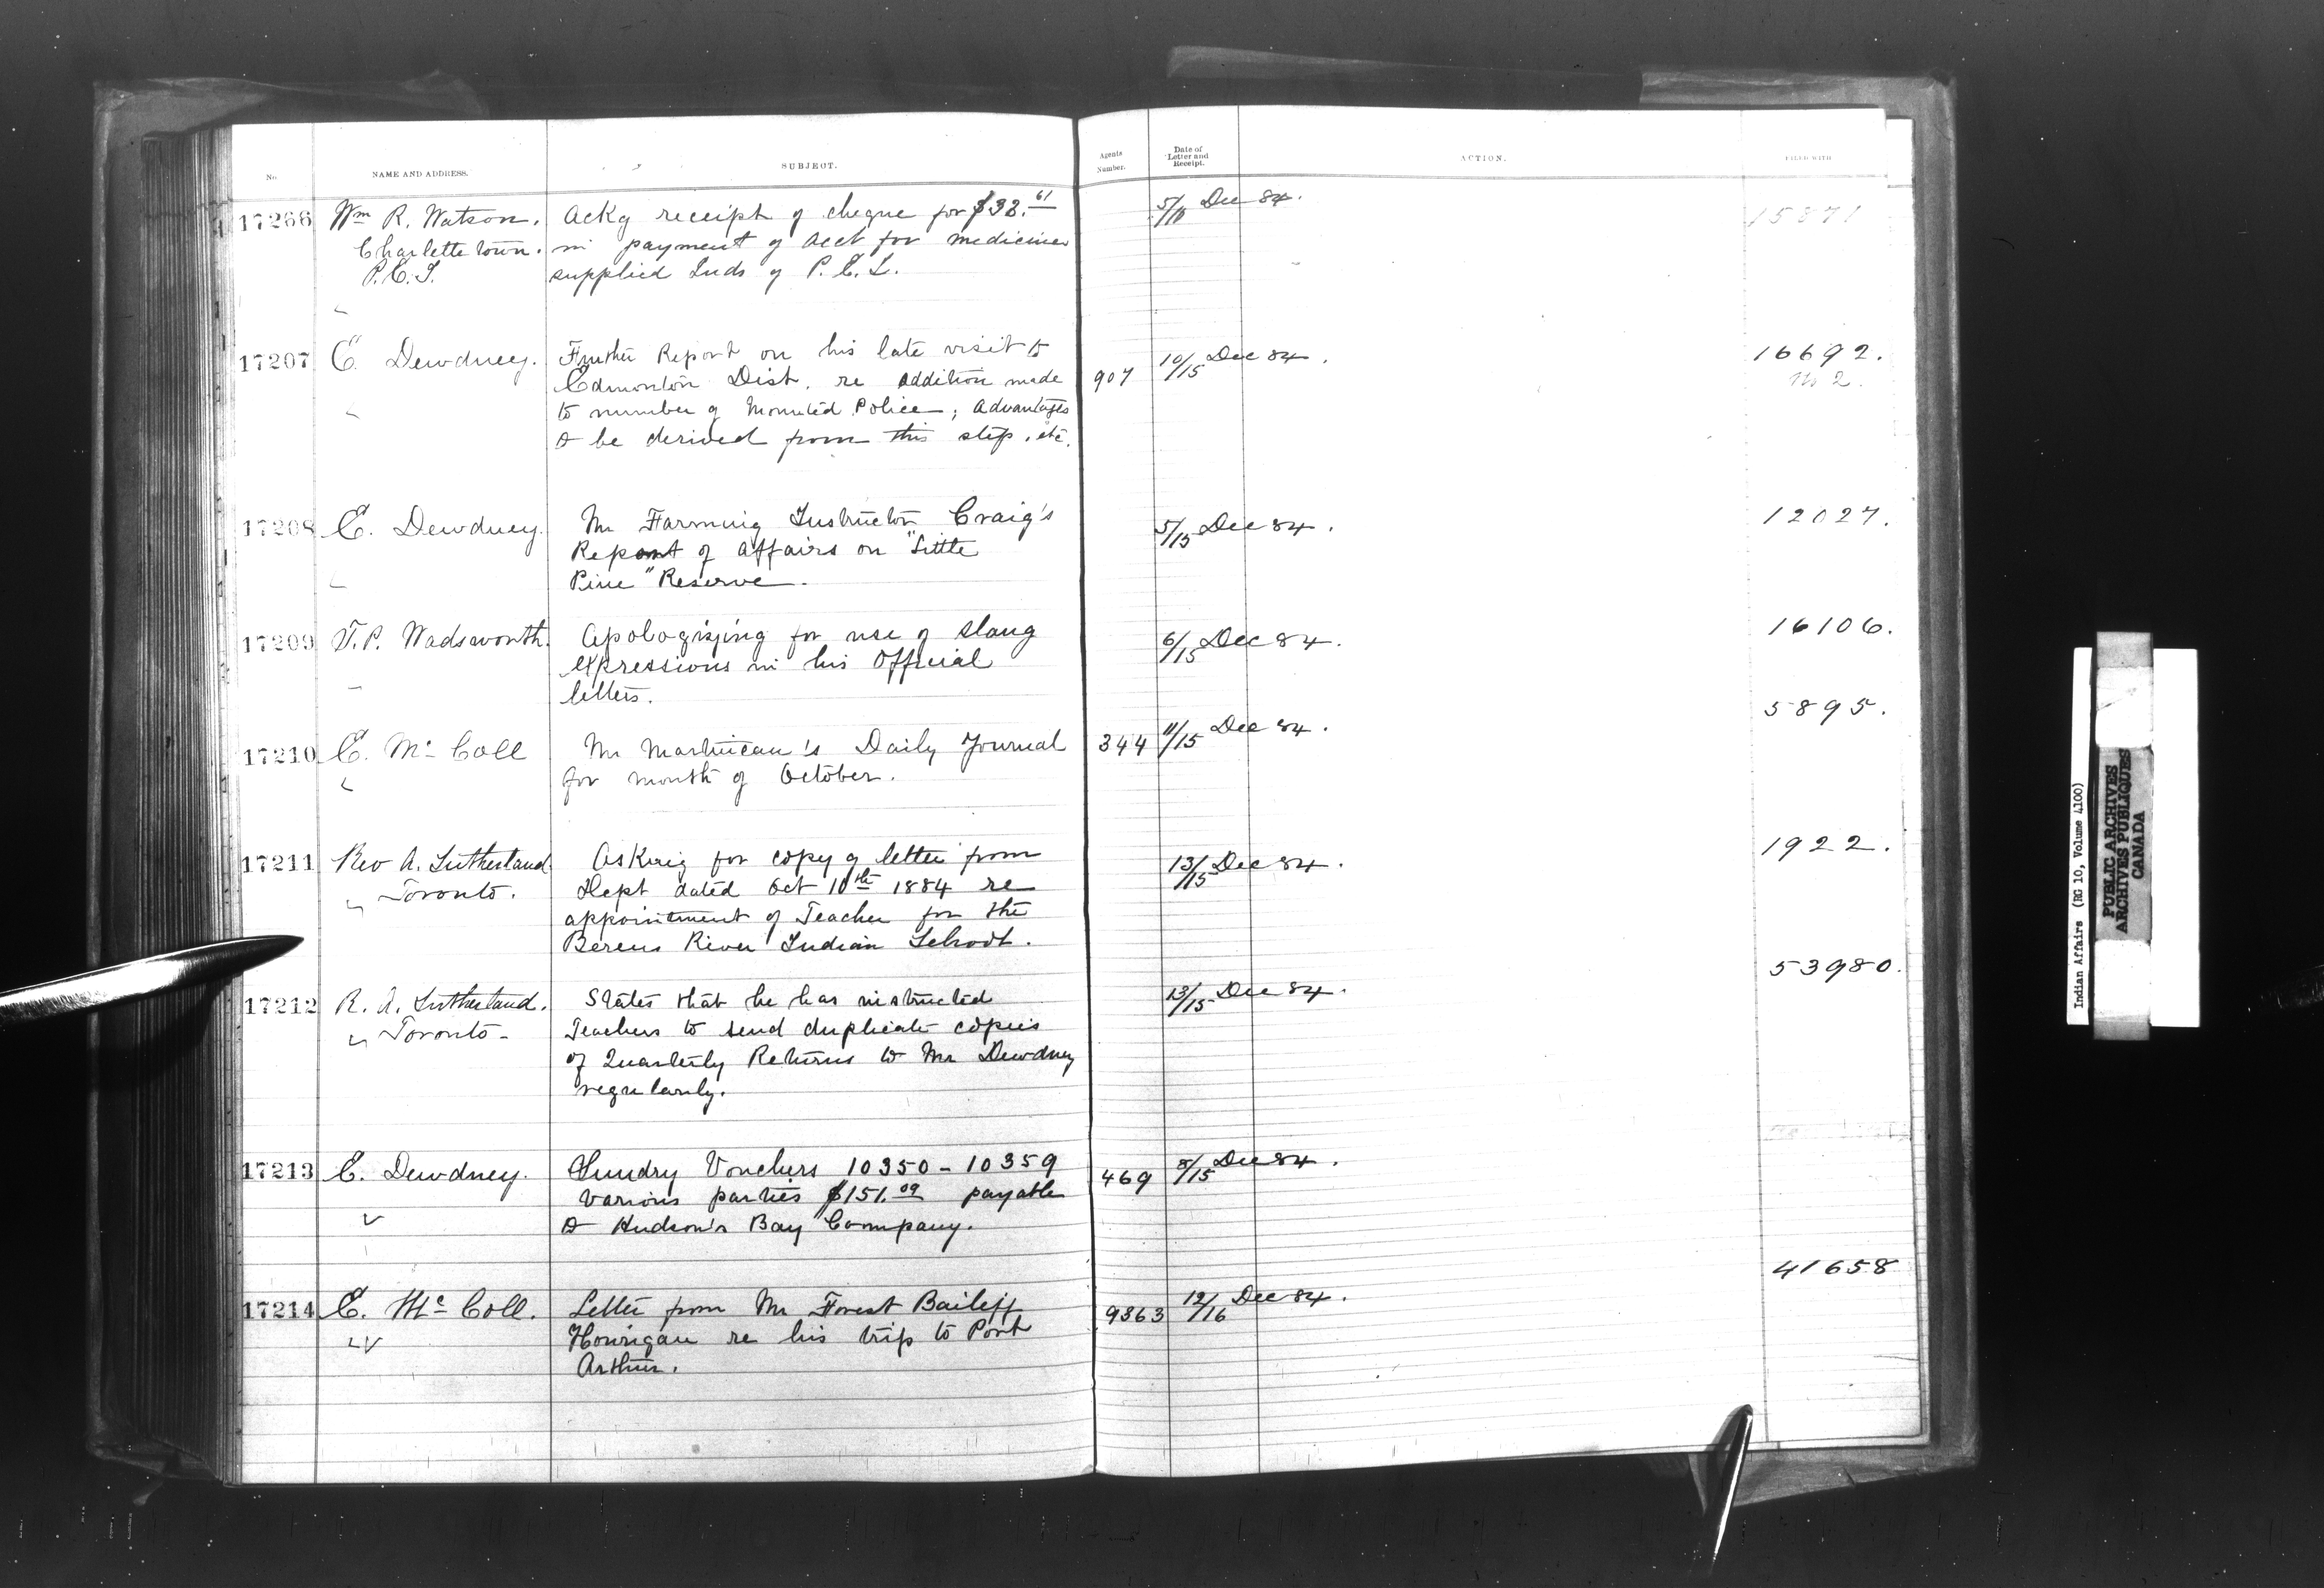 No. NAME AND ADDRESS. SUBJECT. Agents Number. Date of Letter and Receipt. ACTION. FILED WITH
17266 Wm R. Watson. Ackg receipt of cheque for $32.61 5/15 Dec 84. 15871
Charlettetown. in payment of acct for medicines
P.E.I. supplied Inds of P.E.I.
17207 E. Dewdney. Further Report on his late visit to 10/15 Dec 84. 16692.
Edmonton Dist. re addition made 907 No 2.
to number of Mounted Police; advantages
to be derived from this step, etc.
17208 E. Dewdney. Mr Farming Instructor Craig's 5/15 Dec 84. 12027.
Report of affairs on "Little
Pine" Reserve.
17209 T.P. Wadsworth. Apologizing for use of slang 6/15 Dec 84. 16106.
expressions in his Official
letters.
17210 E. Mc Coll Mr Martineau's Daily Journal 344 11/15 Dec 84. 5895.
for month of October.
17211 Rev A. Sutherland Asking for copy of letter from 13/15 Dec 84. 1922.
Toronto. Dept dated Oct 10th 1884 re
appointment of Teacher for the
Berens River Indian School.
17212 R. A. Sutherland. States that he has instructed 13/15 Dec 84. 53980.
Toronto - Teachers to send duplicate copies
of Quarterly Returns to Mr Dewdney
regularly.
17213 E. Dewdney. Sundry Vouchers 10350 - 10359 469 8/15 Dec 84.
various parties $151.09 payable
to Hudson's Bay Company.
17214 E. Mc Coll. Letter from Mr Forest Bailiff 9363 12/16 Dec 84. 41658
Hourigan re his trip to Port
Arthur.
Indian Affairs (RG 10, Volume 4100)
PUBLIC ARCHIVES
ARCHIVES PUBLIQUES
CANADA